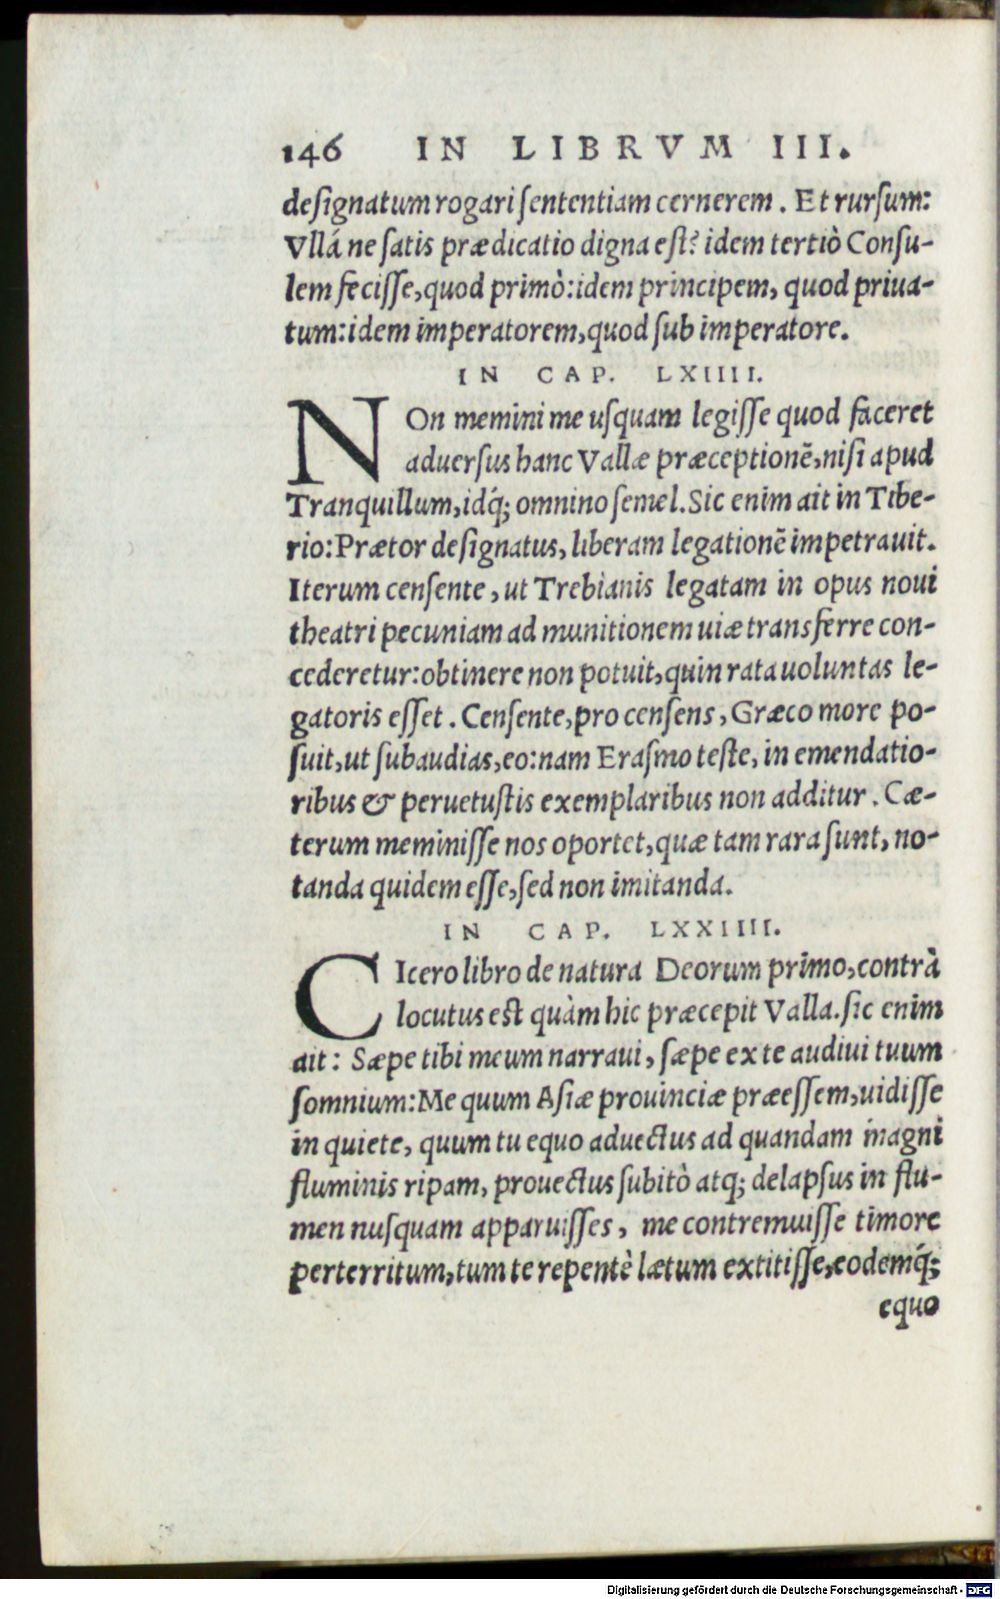 146 IN LIBRVM III.
deſignatum rogari ſententiam cernerem. Et rurſum:
Vllá ne ſatis prædicatio digna eſt? idem tertiò Conſu-
lem feciſſe, quod primò: idem principem, quod priua-
tum: idem imperatorem, quod ſub imperatore.
IN CAP. LXIIII.
NOn memini me uſquam legiſſe quod faceret
aduerſus hanc Vallæ præceptionẽ, niſi apud
Tranquillum, idq́; omnino ſemel. Sic enim ait in Tibe-
rio: Prætor deſignatus, liberam legationẽ impetrauit.
Iterum cenſente, ut Trebianis legatam in opus noui
theatri pecuniam ad munitionem uiæ transferre con-
cederetur: obtinere non potuit, quin rata uoluntas le-
gatoris eſſet. Cenſente, pro cenſens, Græco more po-
ſuit, ut ſubaudias, eo: nam Eraſmo teſte, in emendatio-
ribus & peruetuſtis exemplaribus non additur. Cæ-
terum meminiſſe nos oportet, quæ tam rara ſunt, no-
tanda quidem eſſe, ſed non imitanda.
IN CAP. LXXIIII.
CIcero libro de natura Deorum primo, contrà
locutus eſt quàm hic præcepit Valla. ſic enim
ait: Sæpe tibi meum narraui, ſæpe ex te audiui tuum
ſomnium: Me quum Aſiæ prouinciæ præeſſem, uidiſſe
in quiete, quum tu equo aduectus ad quandam magni
fluminis ripam, prouectus ſubitò atq; delapſus in flu-
men nuſquam apparuiſſes, me contremuiſſe timore
perterritum, tum te repentè lætum extitiſſe, eodemq́;
equo
Digitalisierung gefördert durch die Deutsche Forschungsgemeinschaft - DFG